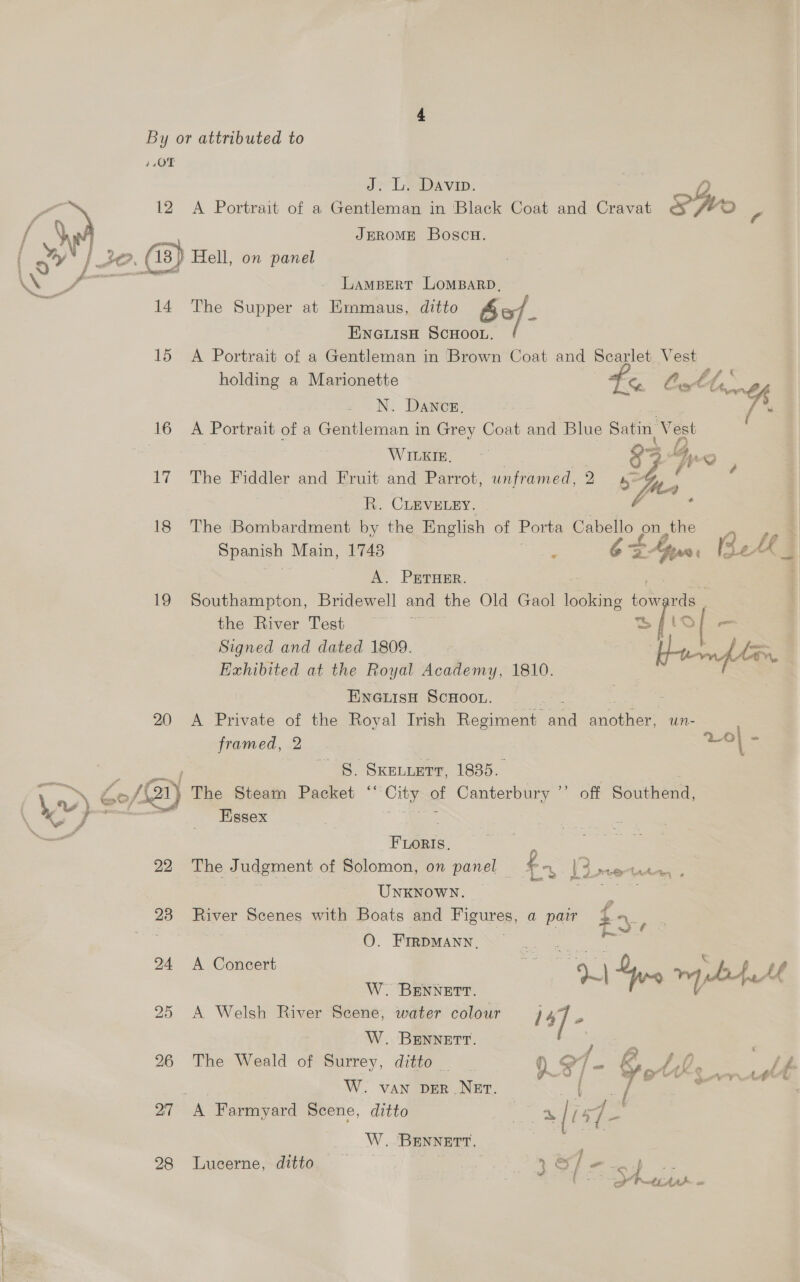 4
By or attributed to
LOT
J. L. DAVID.
12 A Portrait of a Gentleman in Black Coat and Cravat
JEROME BOSCH.
20. 13 Hell, on panel
LAMBERT LOMBARD.
14 The Supper at Emmaus, ditto
ENGLISH SCHOOL.
15 A Portrait of a Gentleman in Brown Coat and Scarlet Vest
holding a Marionette
N. DANCE.
16 A Portrait of a Gentleman in Grey Coat and Blue Satin Vest
WILKIE.
17 The Fiddler and Fruit and Parrot, unframed, 2
R. CLEVELEY.
18 The Bombardment by the English of Porta Cabello on the
Spanish Main, 1743 Bell
A. PETHER.
19 Southampton, Bridewell and the Old Gaol looking towards
the River Test
Signed and dated 1809.
Exhibited at the Royal Academy, 1810.
ENGLISH SCHOOL.
20 A Private of the Royal Irish Regiment and another, un-
framed, 2 20/-
S. SKELLETT, 1835.
60/ 21 The Steam Packet “City of Canterbury” off Southend,
Essex
FLORIS.
22 The Judgment of Solomon, on panel
UNKNOWN.
23 River Scenes with Boats and Figures, a pair
O. FIRDMANN.
24 A Concert
W. BENNETT.
25 A Welsh River Scene, water colour
W. BENNETT.
26 The Weald of Surrey, ditto
W. VAN DER NET.
27 A Farmyard Scene, ditto
W. BENNETT.
28 Lucerne, ditto